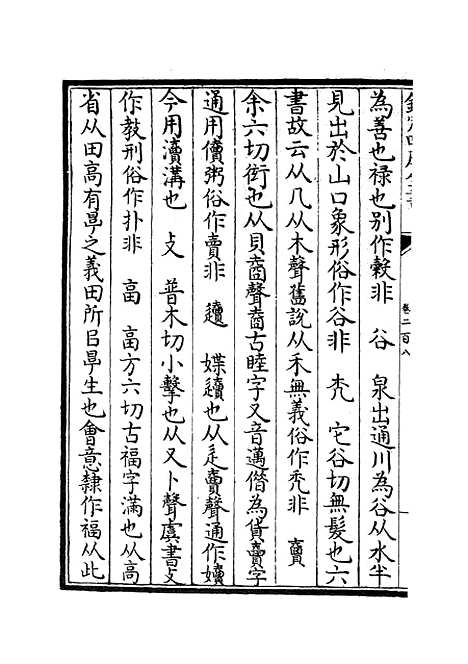 為善也禄也别作糓非　谷　泉出通川為谷从水半
見出於山口象形俗作谷非　禿　它谷切無髮也六
書故云从几从木聲舊說从禾無義俗作禿非　𧶠
余六切衒也从貝𡍬聲𡍬古睦字又音邁借為貨賣字
通用儥粥俗作賣非　𨖍　媟𨖍也从辵𧶠聲通作嬻
今用瀆溝也　攴　普木切小擊也从又卜聲虞書攴
作教刑俗作扑非　畗　畗方六切古福字滿也从高
省从田高有㫗之義田所㠯㫗生也會意隸作福从此
卷二百八